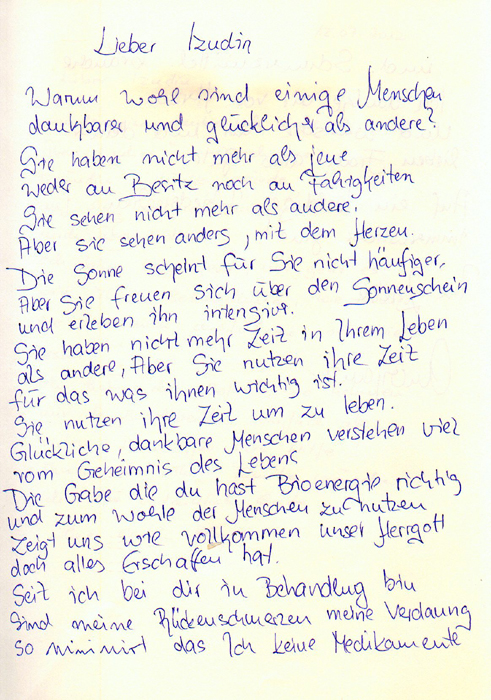 Lieber Izudin
Warum wohl sind einige Menschen
dankbarer und glücklicher als andere?
Sie haben nicht mehr als jene
weder an Besitz noch an Fähigkeiten
Sie sehen nicht mehr als andere,
Aber sie sehen anders, mit dem Herzen.
Die Sonne scheint für Sie nicht häufiger,
Aber Sie freuen sich über den Sonnenschein
und erleben ihn intensiver.
Sie haben nicht mehr Zeit in Ihrem Leben
als andere, Aber Sie nutzen ihre Zeit
für das was ihnen wichtig ist.
Sie nutzen ihre Zeit um zu leben.
Glückliche, dankbare Menschen verstehen viel
vom Geheimnis des Lebens
Die Gabe die du hast Bioenergie richtig
und zum Wohle der Menschen zu nutzen
Zeigt uns wie vollkommen unser Herrgott
doch alles Erschaffen hat.
Seit ich bei dir in Behandlung bin
Sind meine Rückenschmerzen meine Verdauung
so das Ich keine Medikamente